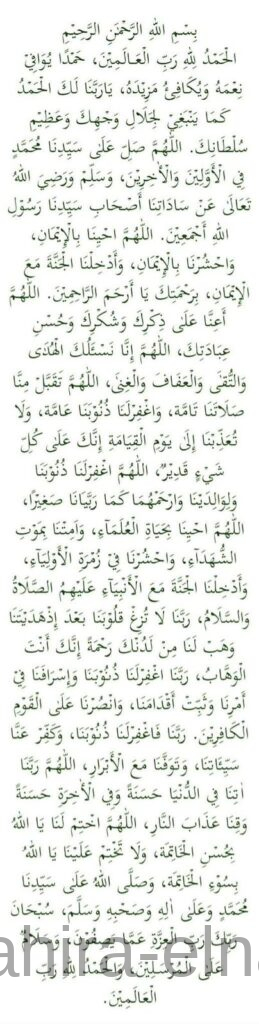 بِسْمِ اللهِ الرَّحْمٰنِ الرَّحِيْمِ
الْحَمْدُ لِلّٰهِ رَبِّ الْعَـالَمِيْنَ، حَمْدًا يُوَافِيْ
نِعَمَهُ وَيُكَافِئُ مَزِيْدَهُ، يَارَبَّنَا لَكَ الْحَمْدُ
كَمَا يَنْبَغِيْ لِجَلَالِ وَجْهِكَ وَعَظِيْمِ
سُلْطَانِكَ. اَللّٰهُمَّ صَلِّ عَلَى سَيِّدِنَا مُحَمَّدٍ
فِي الْأَوَّلِيْنَ وَالْأٰخِرِيْنَ، وَسَلِّمْ وَرَضِيَ اللهُ
تَعَالَى عَنْ سَادَاتِنَا أَصْحَابِ سَيِّدِنَا رَسُوْلِ
اللهِ أَجْمَعِيْنَ. اَللّٰهُمَّ احْيِنَا بِالْإِيْمَانِ،
وَاحْشُرْنَا بِالْإِيْمَانِ، وَأَدْخِلْنَا الْجَنَّةَ مَعَ
الْإِيْمَانِ، بِرَحْمَتِكَ يَا أَرْحَمَ الرَّاحِمِيْنَ. اَللّٰهُمَّ
أَعِنَّا عَلَى ذِكْرِكَ وَشُكْرِكَ وَحُسْنِ
عِبَادَتِكَ، اَللّٰهُمَّ إِنَّا نَسْئَلُكَ الْهُدَى
وَالتُّقَى وَالْعَفَافَ وَالْغِنَى، اَللّٰهُمَّ تَقَبَّلْ مِنَّا
صَلَاتَنَا تَامَّةً، وَاغْفِرْلَنَا ذُنُوْبَنَا عَامَّةً، وَلَا
تُعَذِّبْنَا إِلَى يَوْمِ الْقِيَامَةِ إِنَّكَ عَلَى كُلِّ
شَيْءٍ قَدِيْرٌ، اَللّٰهُمَّ اغْفِرْلَنَا ذُنُوْبَنَا
وَلِوَالِدَيْنَا وَارْحَمْهُمَا كَمَا رَبَّيَانَا صَغِيْرًا،
اَللّٰهُمَّ احْيِنَا بِحَيَاةِ الْعُلَمَآءِ، وَاَمِتْنَا بِمَوْتِ
الشُّهَدَآءِ، وَاحْشُرْنَا فِيْ زُمْرَةِ الْأَوْلِيَآءِ،
وَأَدْخِلْنَا الْجَنَّةَ مَعَ الْأَنْبِيَآءِ عَلَيْهِمُ الصَّلَاةُ
وَالسَّلَامُ، رَبَّنَا لَا تُزِغْ قُلُوْبَنَا بَعْدَ إِذْهَدَيْتَنَا
وَهَبْ لَنَا مِنْ لَدُنْكَ رَحْمَةً إِنَّكَ أَنْتَ
الْوَهَّابُ، رَبَّنَا اغْفِرْلَنَا ذُنُوْبَنَا وَإِسْرَافَنَا فِيْ
أَمْرِنَا وَثَبِّتْ أَقْدَامَنَا، وَانْصُرْنَا عَلَى الْقَوْمِ
الْكَافِرِيْنَ. رَبَّنَا فَاغْفِرْلَنَا ذُنُوْبَنَا، وَكَفِّرْ عَنَّا
سَيِّئَاتِنَا، وَتَوَفَّنَا مَعَ الْأَبْرَارِ، اَللّٰهُمَّ رَبَّنَا
اٰتِنَا فِي الدُّنْيَا حَسَنَةً وَفِي الْأٰخِرَةِ حَسَنَةً
وَقِنَا عَذَابَ النَّارِ، اَللّٰهُمَّ اخْتِمْ لَنَا يَا اَللهُ
بِحُسْنِ الْخَاتِمَةِ، وَلَا تَخْتِمْ عَلَيْنَا يَا اَللهُ
بِسُوْءِ الْخَاتِمَةِ، وَصَلَّى اللهُ عَلَى سَيِّدِنَا
مُحَمَّدٍ وَعَلَى اٰلِهِ وَصَحْبِهِ وَسَلَّمَ، سُبْحَانَ
رَبِّكَ رَبِّ الْعِزَّةِ عَمَّا يَصِفُوْنَ، وَسَلَامٌ
عَلَى الْمُرْسَلِيْنَ، وَالْحَمْدُ لِلّٰهِ رَبِّ
الْعَالَمِيْنَ.
ahira-elna